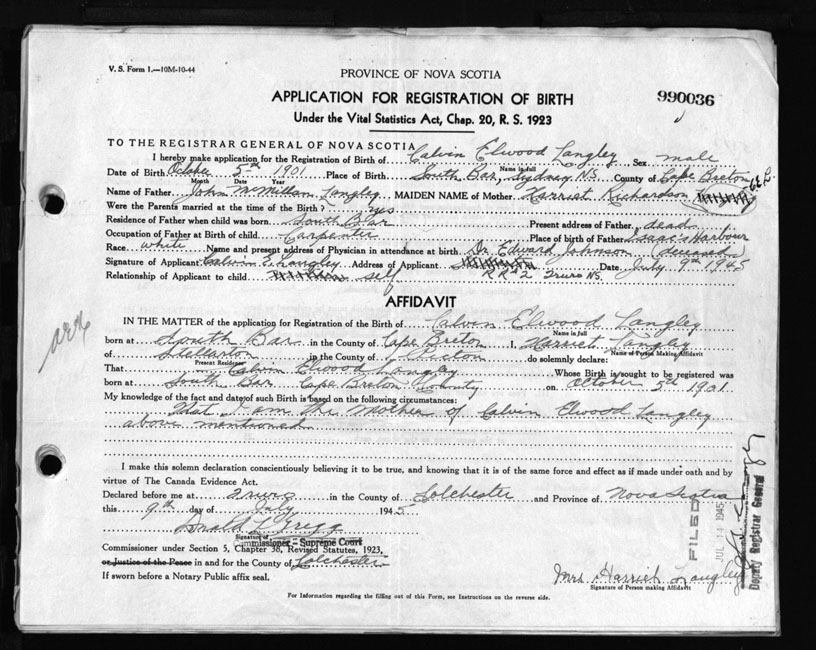 V. S. Form 1.—10M-10-44
PROVINCE OF NOVA SCOTIA
APPLICATION FOR REGISTRATION OF BIRTH
990036
Under the Vital Statistics Act, Chap. 20, R. S. 1923
TO THE REGISTRAR GENERAL OF NOVA SCOTIA
I hereby make application for the Registration of Birth of Calvin Elwood Langley Sex male
Name in full
Date of Birth October 5th 1901 Place of Birth South Bar, Sydney N.S. County of Cape Breton
Month Date Year
Name of Father John McMillan Langley MAIDEN NAME of Mother Harriet Richardson
Were the Parents married at the time of the Birth? yes
Residence of Father when child was born South Bar Present address of Father dead
Occupation of Father at Birth of child Carpenter Place of birth of Father Isaac's Harbour
Race white Name and present address of Physician in attendance at birth Dr. Edward Johnson (deceased)
Signature of Applicant Calvin E. Langley Address of Applicant R R #2 Truro N.S. Date July 9th 1945
Relationship of Applicant to child self
AFFIDAVIT
IN THE MATTER of the application for Registration of the Birth of Calvin Elwood Langley
Name in full
born at South Bar in the County of Cape Breton I, Harriet Langley
Name of Person Making Affidavit
of Stellarton in the County of Pictou do solemnly declare:
Present Residence
That Calvin Elwood Langley Whose Birth is sought to be registered was
born at South Bar Cape Breton County on October 5th 1901.
My knowledge of the fact and date of such Birth is based on the following circumstances:
That I am the Mother of Calvin Elwood Langley
above mentioned
I make this solemn declaration conscientiously believing it to be true, and knowing that it is of the same force and effect as if made under oath and by
virtue of The Canada Evidence Act.
Declared before me at Truro in the County of Colchester and Province of Nova Scotia
this 9th day of July 1945
Donald L. Gregg
Signature of
Commissioner — Supreme Court
Commissioner under Section 5, Chapter 38, Revised Statutes, 1923,
or Justice of the Peace in and for the County of Colchester
If sworn before a Notary Public affix seal.
Mrs Harriet Langley
Signature of Person making Affidavit
For Information regarding the filling out of this Form, see Instructions on the reverse side.
FILED
1945
Deputy Registrar General